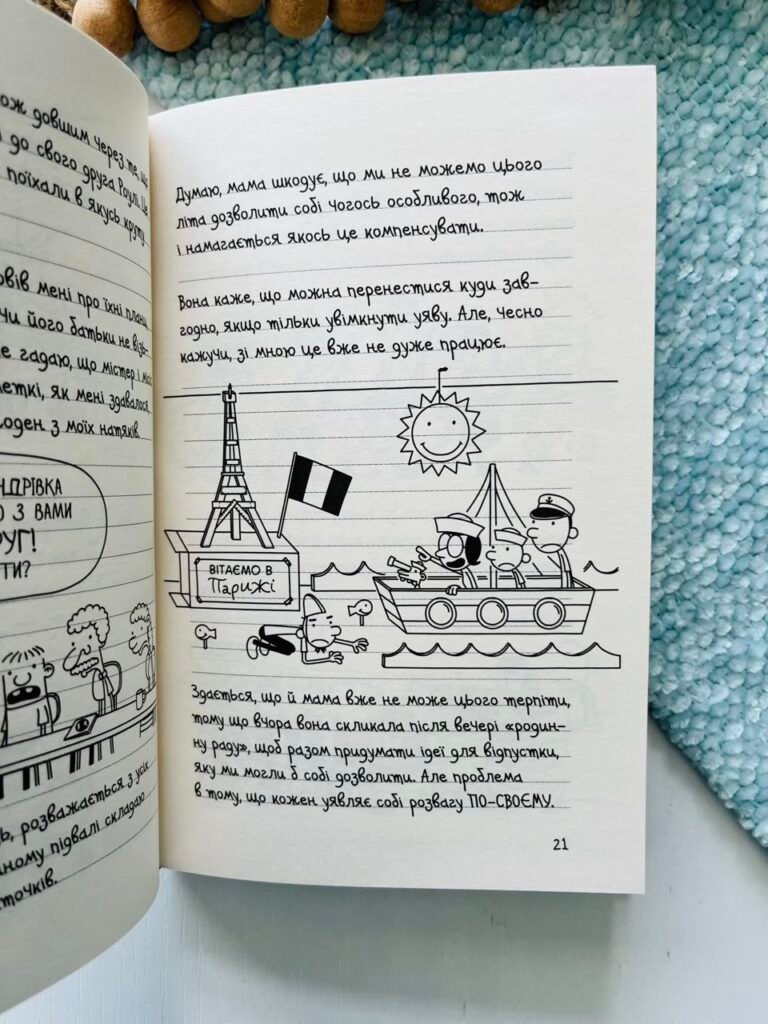 довшим через те, що
до свого друга Роулі. Це
поїхали в якусь круту
мені про їхні плани,
чи його батьки не
гадаю, що містер і
як мені здавалося
з моїх натяків.
З ВАМИ
розважається з усіх
підвалі складаю
Думаю, мама шкодує, що ми не можемо цього
літа дозволити собі чогось особливого, тож
і намагається якось це компенсувати.
Вона каже, що можна перенестися куди зав-
годно, якщо тільки увімкнути уяву. Але, чесно
кажучи, зі мною це вже не дуже працює.
ВІТАЄМО В
Парижі
Здається, що й мама вже не може цього терпіти,
тому що вчора вона скликала після вечері «родин-
ну раду», щоб разом придумати ідеї для відпустки,
яку ми могли б собі дозволити. Але проблема
в тому, що кожен уявляє собі розвагу ПО-СВОЄМУ.
21